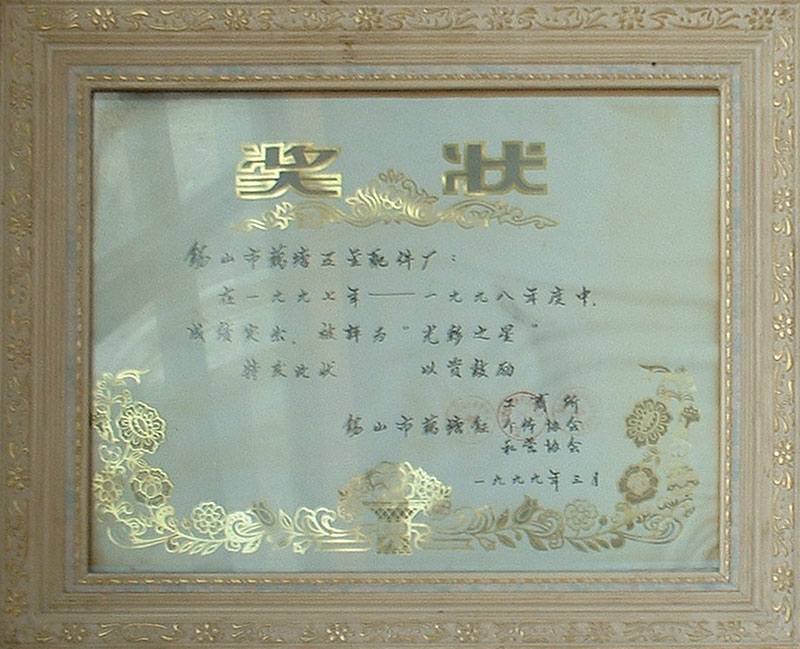 奖状
锡山市藕塘五金配件厂：
在一九九七年——一九九八年度中，
成绩突出，被评为“光彩之星”
特发此状 以资鼓励
工商所
锡山市藕塘镇 个体协会
私营协会
一九九九年三月